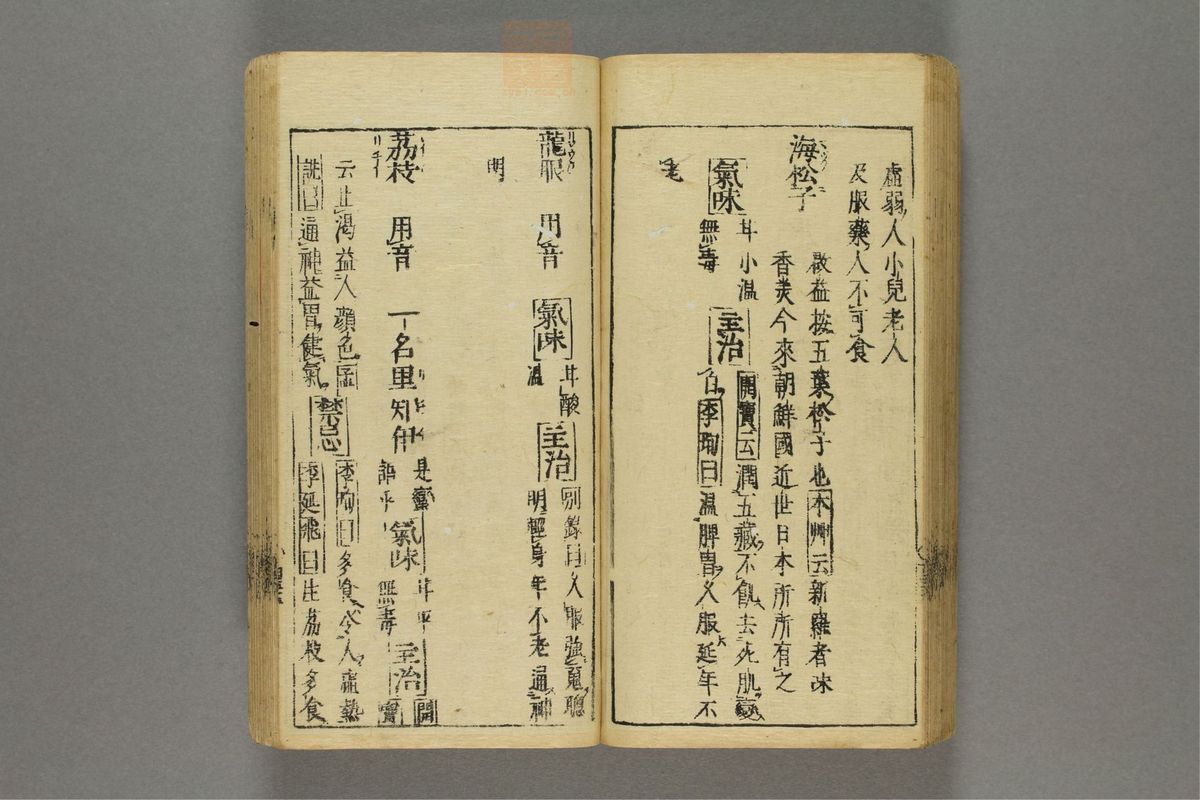 虛弱人小兒老人
及服藥人不可食
海松子
啟益按五葉松子也本艸云新羅者味
香美今來朝鮮國近世日本所所有之
氣味
甘小溫
無毒
主治
開寶云潤五藏不飢去死肌變
白李珣曰溫脾胃久服延年不
老
龍眼 用音 氣味
甘酸
溫
主治
別錄曰久服強䰟聰
明輕身年不老通神
明
荔枝 用音 一名里知伊
リチイ
是蠻
語乎
氣味
甘平
無毒
主治
開
寶
云止渴益人顏色孟
詵曰通神益智健氣
禁忌
李珣曰多食令人虛熱
李延飛曰生荔枝多食